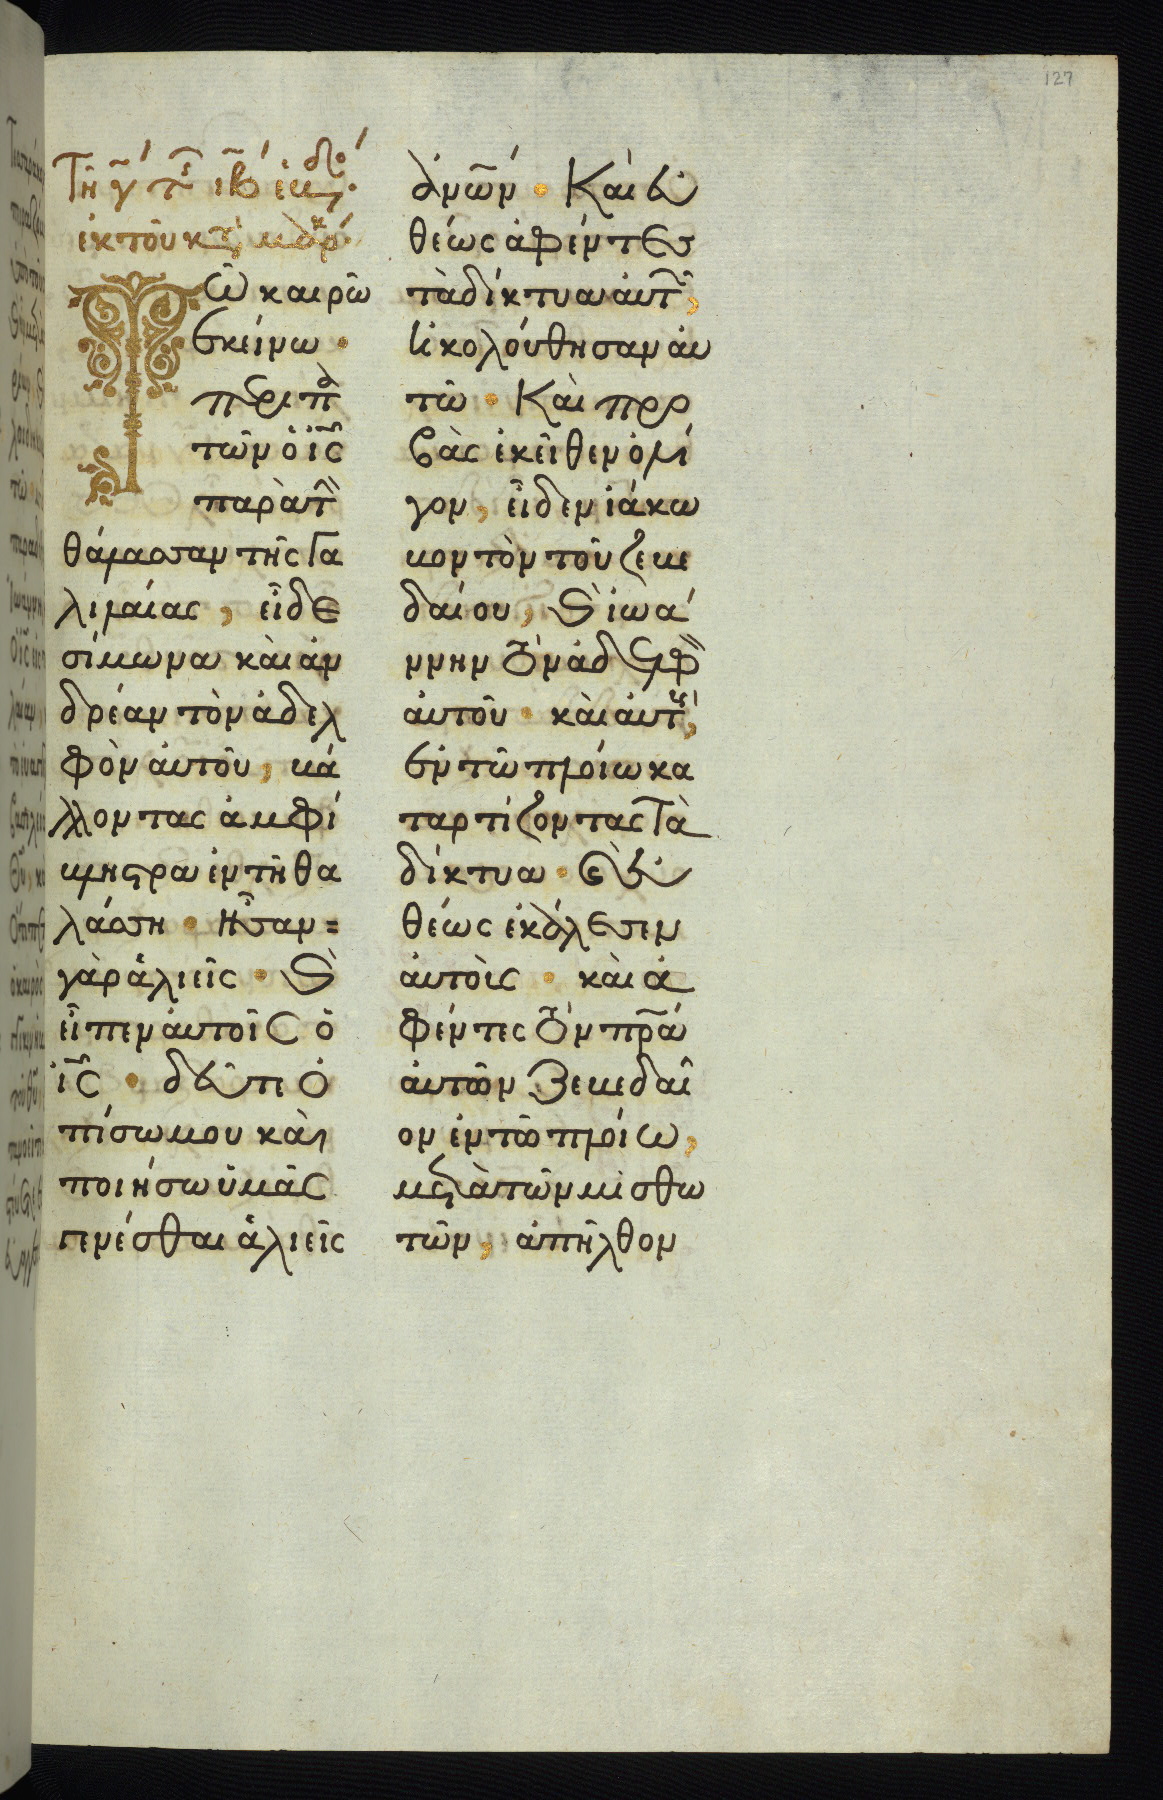 127
Τῆ γ τῆς ιβ ἑβδο
ἐκ τοῦ κατὰ μάρ
Τῶ καιρῶ
ἐκείνω ·
περιπα
τῶν ὁ ἰς
παρὰ τὴν
θάλασσαν τῆς Γα
λιλαίας, εἶδε
σίμωνα καὶ ἀν
δρέαν τὸν ἀδελ
φὸν ἀυτοῦ, βά
λλοντας ἀμφί
βληστρα ἐν τῆ θα
λάσση · Ἦσαν =
γὰρ ἁλιεῖς · Καὶ
εἶπεν ἀυτοῖς ὁ
ἰς · δεῦτε ὀ
πίσω μου καὶ
ποιήσω ὑμᾶς
γενέσθαι ἁλιεῖς
ἀνῶν · Καὶ ἐυ
θέως ἀφέντες
τὰ δίκτυα ἀυτῶν,
ἠκολούθησαν ἀυ
τῶ · Καὶ προ
βὰς ἐκεῖθεν ὀλί
γον, εἶδεν ἰάκω
βον τὸν τοῦ ζεβε
δαίου, καὶ ἰωά
ννην τὸν ἀδελφὸν
ἀυτοῦ · καὶ ἀυτοὺς,
ἐν τῶ πλοίω κα
ταρτίζοντας τὰ
δίκτυα · καὶ ἐυ
θέως ἐκάλεσεν
ἀυτοὺς · καὶ ἀ
φέντες τὸν πρα
ἀυτῶν Ζεβεδαῖ
ον ἐν τῶ πλοίω,
μετὰ τῶν μισθω
τῶν, ἀπῆλθον